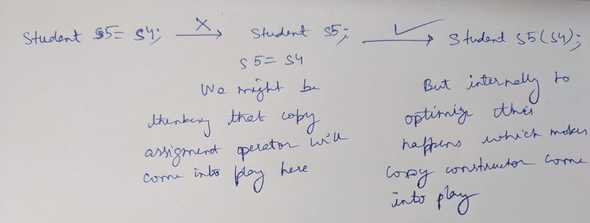 Student s5= s4;
Student s5;
s5= s4
We might be
thinking that copy
assignment operator will
come into play here
Student s5(s4);
But internally to
optimize this
happens which makes
copy constructor come
into play